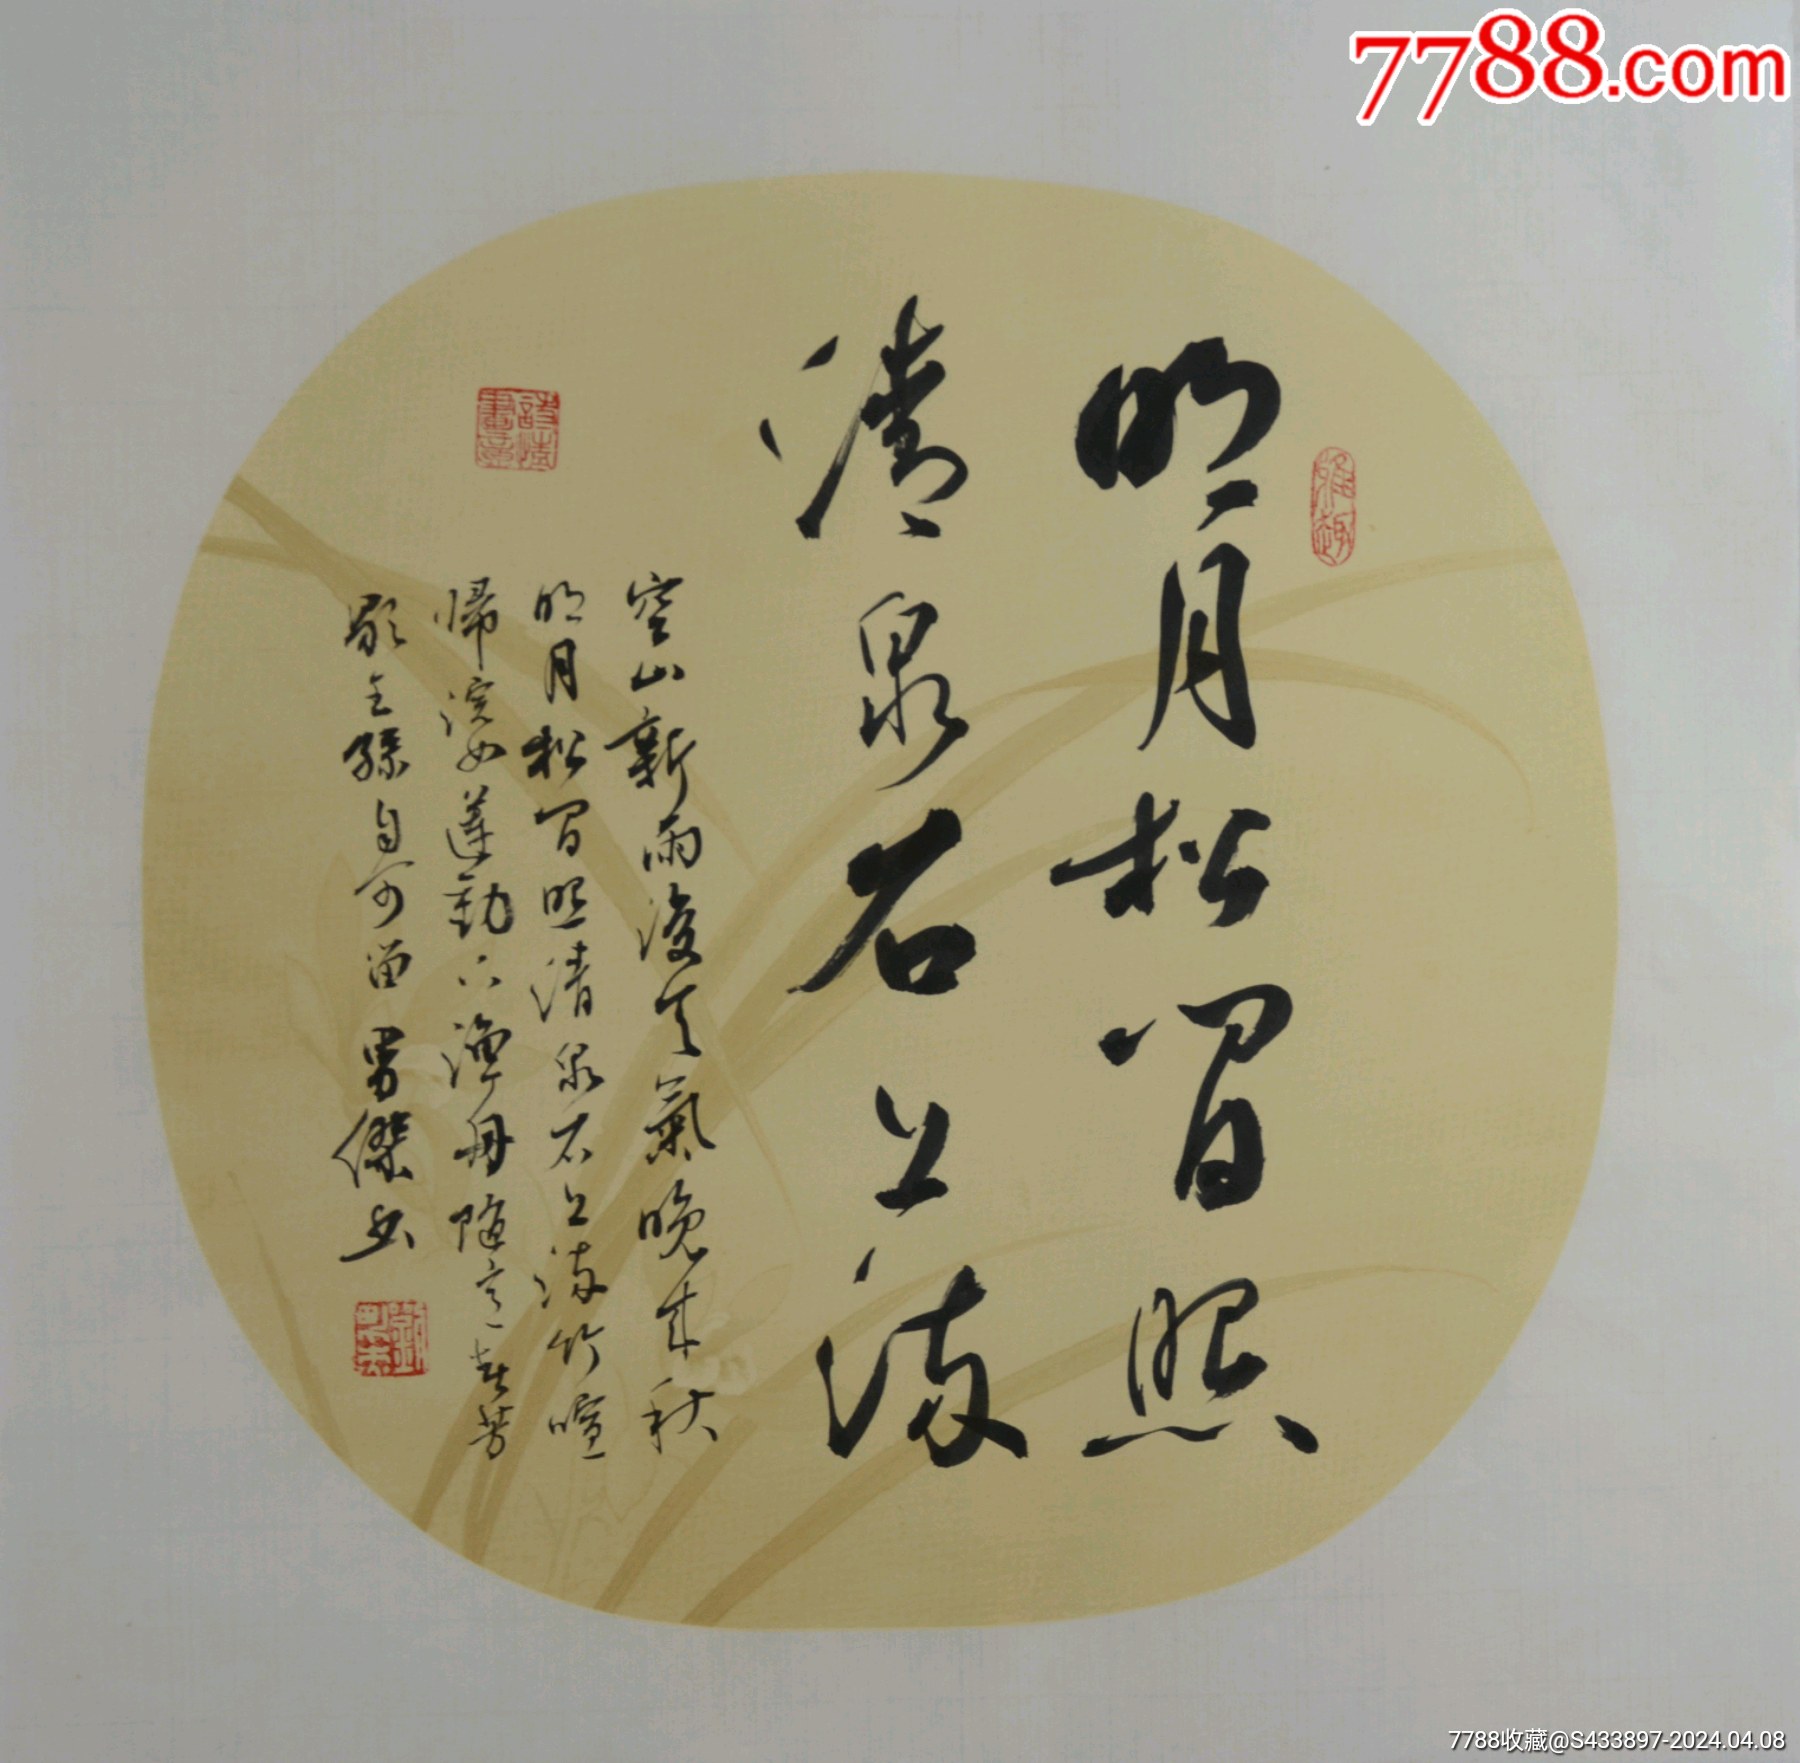 7788.com
明月松間照
清泉石上流
空山新雨後天氣晚來秋
明月松間照清泉石上流竹喧
歸浣女蓮動下漁舟隨意春芳
歇王孫自可留 男傑书
雅趣
詩情畫意
7788收藏@S433897-2024.04.08